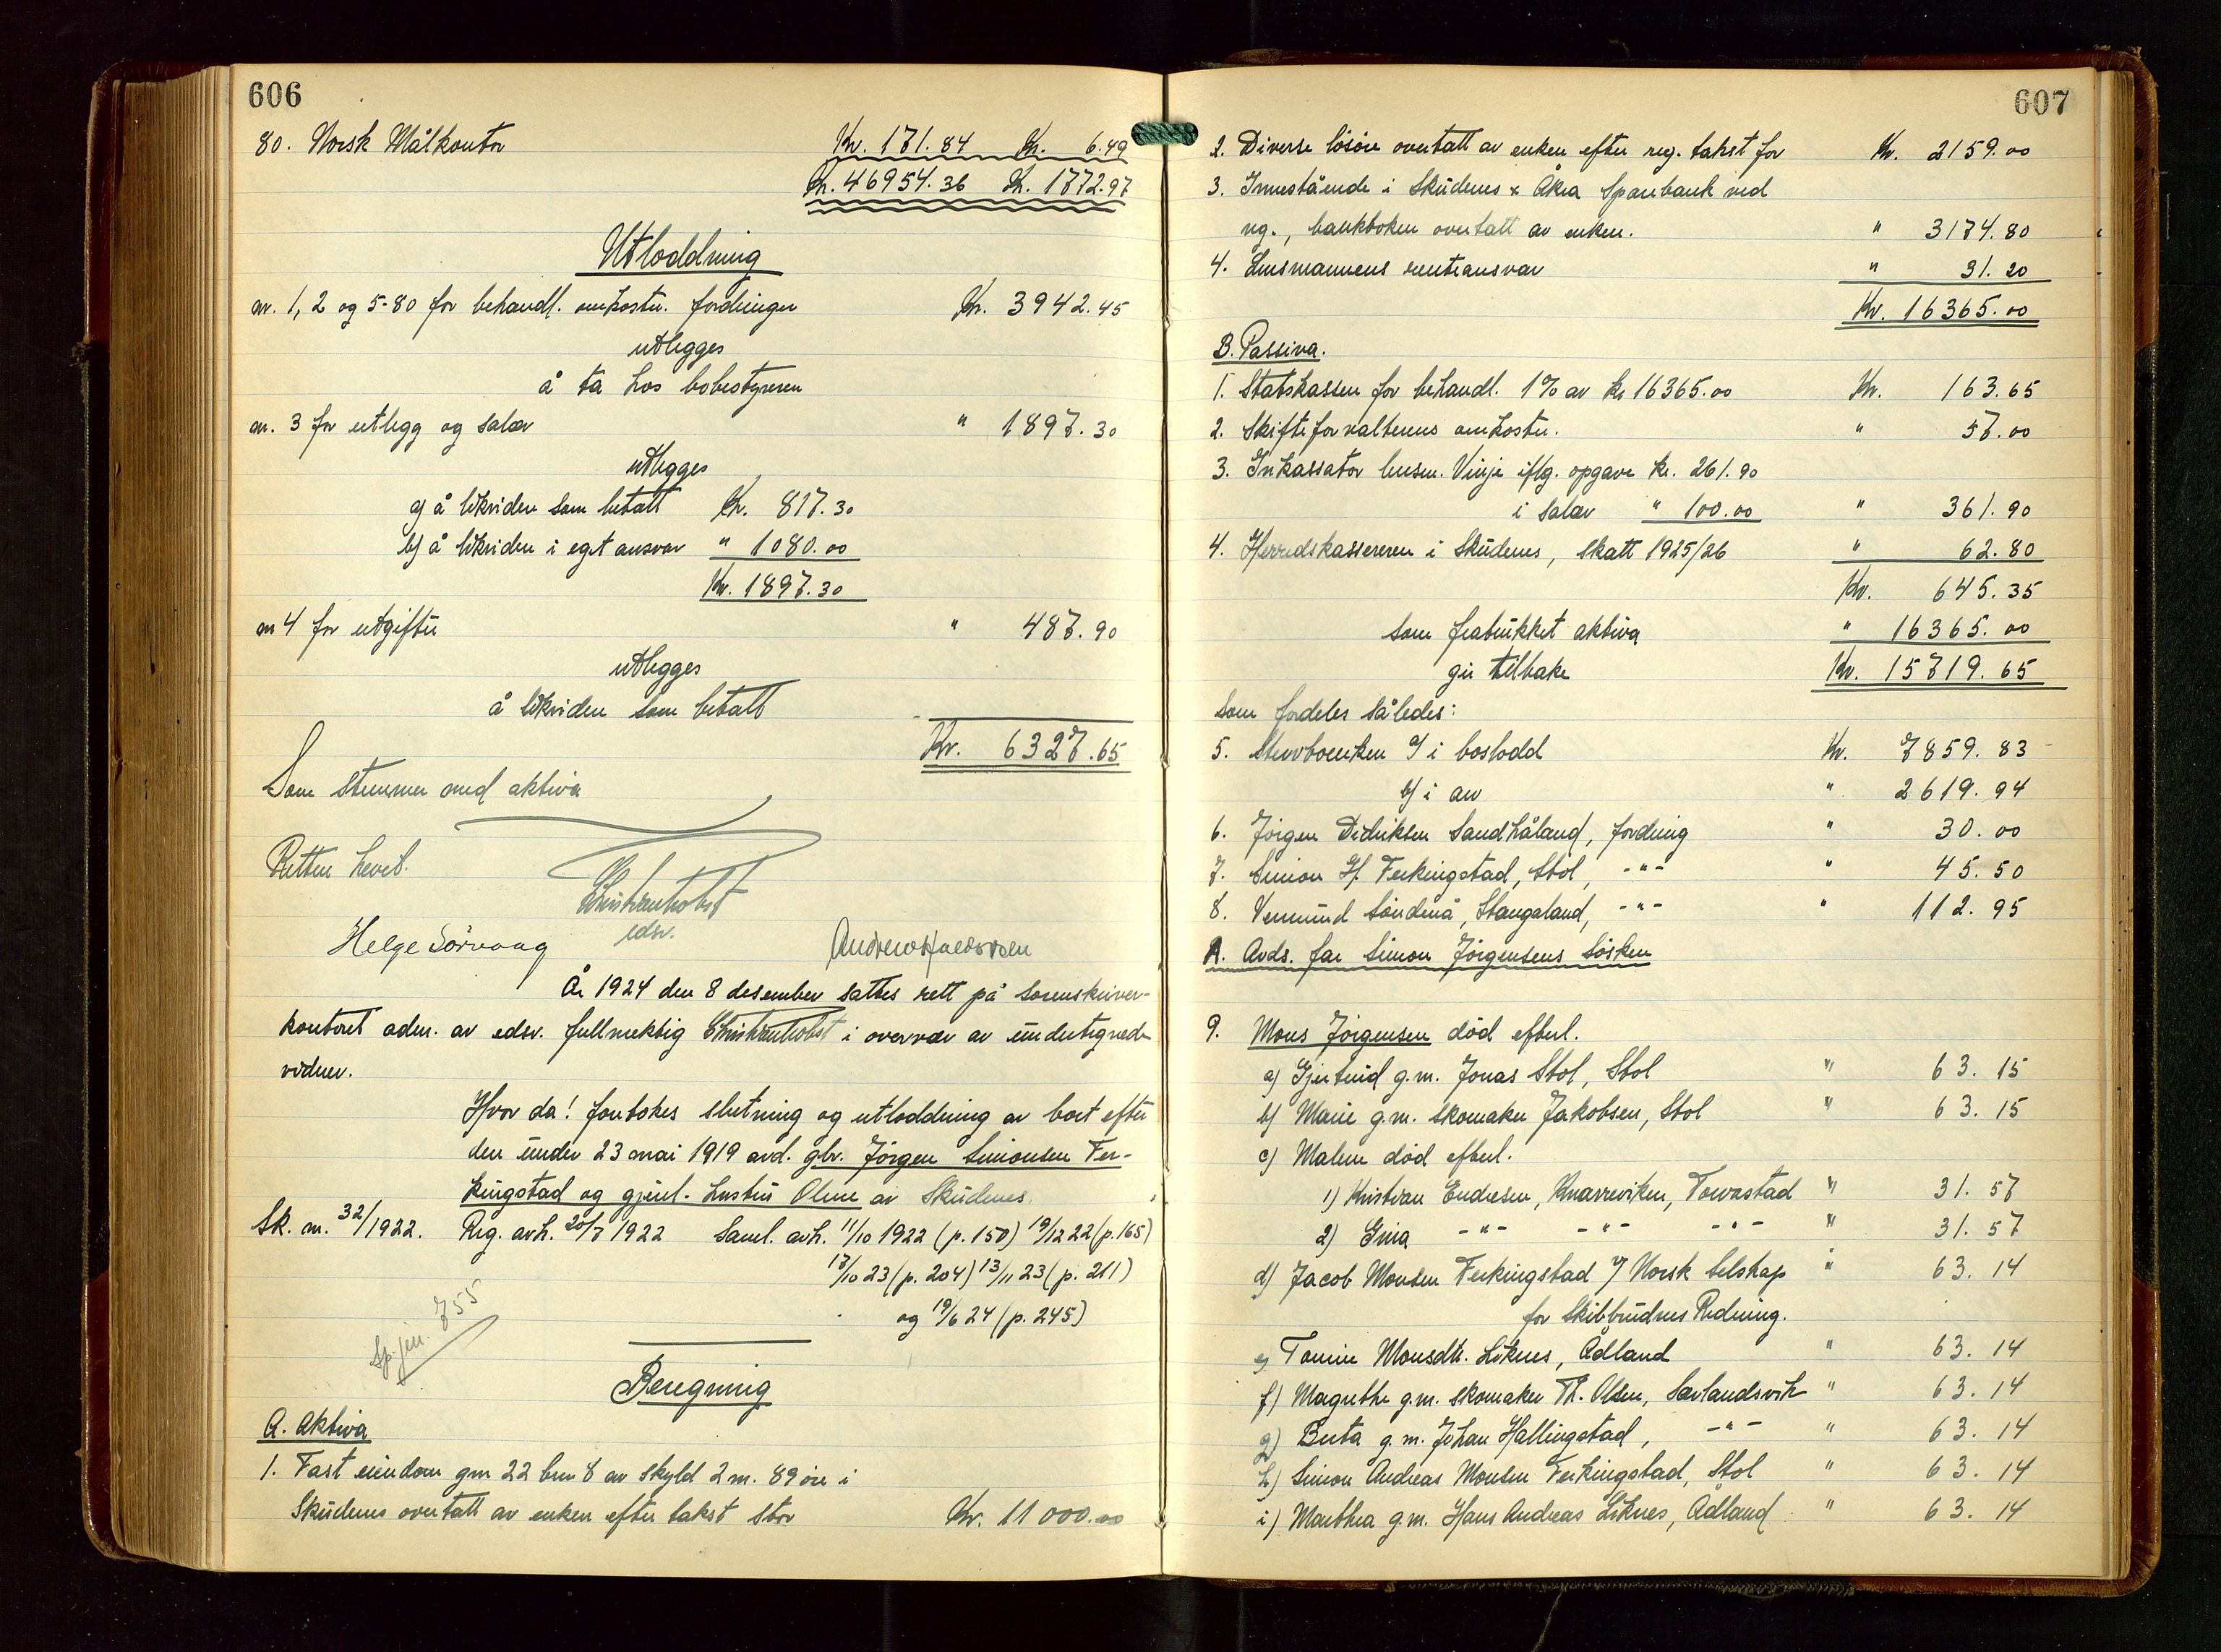 606
80. Norsk Målkontor Kr. 171.84 Kr. 6.49
Kr. 46954.36 Kr. 1772.97
Utloddning
nr. 1, 2 og 5-80 for behandl. omkostn. fordringer Kr. 3942.45
utlegges
å ta hos bobestyreren
nr. 3 for utlegg og salær " 1897.30
utlegges
a) å likviden som betalt Kr. 817.30
b) å likviden i eget ansvar " 1080.00
Kr. 1897.30
nr 4 for utgifter " 487.90
utlegges
å likviden som betalt
Kr. 6327.65
Som stemmer med aktiva
Retten hevet.
Christian Holst
edsv.
Helge Sörvaag
År 1924 den 8 desember sattes rett på sorenskriver-
kontoret adm. av edsv. fullmektig Christian Holst i overvær av undertegnede
vidner.
Hvor da! foretokes slutning og utloddning av boet efter
den under 23 mai 1919 avd. gbr. Jörgen Simonsen Fer-
kingstad og gjenl. hustru Oline av Skudenes.
Sk. nr. 32/1922. Reg. avh. 20/7 1922 Saml. avh. 11/10 1922 (p. 150) 19/12 22 (p. 165)
17/10 23 (p. 204) 13/11 23 (p. 211)
og 19/6 24 (p. 245)
Sp.jur. 755
Beregning
A. Aktiva
1. Fast eiendom gnr 22 bnr 8 av skyld 2 m. 89 öre i
Skudenes overtatt av enken efter takst stor Kr. 11 000.00
607
2. Diverse lösöre overtatt av enken efter reg. takst for Kr. 2159.00
3. Innestående i Skudenes & Åkra Sparebank ved
reg., bankboken overtatt av enken. " 3174.80
4. Lensmannens renteansvar " 31.20
Kr. 16365.00
B. Passiva.
1. Statskassen for behandl. 1% av kr 16365.00 Kr. 163.65
2. Skifteforvalterens omkostn. " 57.00
3. Inkassator lensm. Vinje iflg. opgave kr. 261.90
i salær " 100.00 " 361.90
4. Herredskassereren i Skudenes, skatt 1925/26 " 62.80
Kr. 645.35
som fratrukket aktiva " 16365.00
gir tilbake Kr. 15719.65
Som fordeles således:
5. Stervboenken a/ i boslodd Kr. 7859.83
b/ i arv " 2619.94
6. Jörgen Didriksen Sandhåland, fordring " 30.00
7. Simon H. Ferkingstad, Stol, -"- " 45.50
8. Vermund Söndenå, Stangaland, -"- " 112.95
A. Avds. far Simon Jörgensens sösken
9. Mons Jörgensen död efterl.
a) Gjertrud g.m. Jonas Stol, Stol " 63.15
b) Marie g.m. skomaker Jakobsen, Stol " 63.15
c) Malene död efterl.
1) Kristian Endresen, Knarreviken, Torvastad " 31.57
2) Gina -"- -"- -"- " 31.57
d) Jacob Monsen Ferkingstad v/ Norsk Selskap " 63.14
for Skibbrudnes Redning.
e) Tomine Monsdtr. Liknes, Ådland " 63.14
f) Magrethe g.m. skomaker Th. Olsen, Sævlandsvik " 63.14
g) Berta g.m. Johan Hallingstad, -"- " 63.14
h) Simon Andreas Monsen Ferkingstad, Stol " 63.14
i) Marthea g.m. Hans Andreas Liknes, Ådland " 63.14